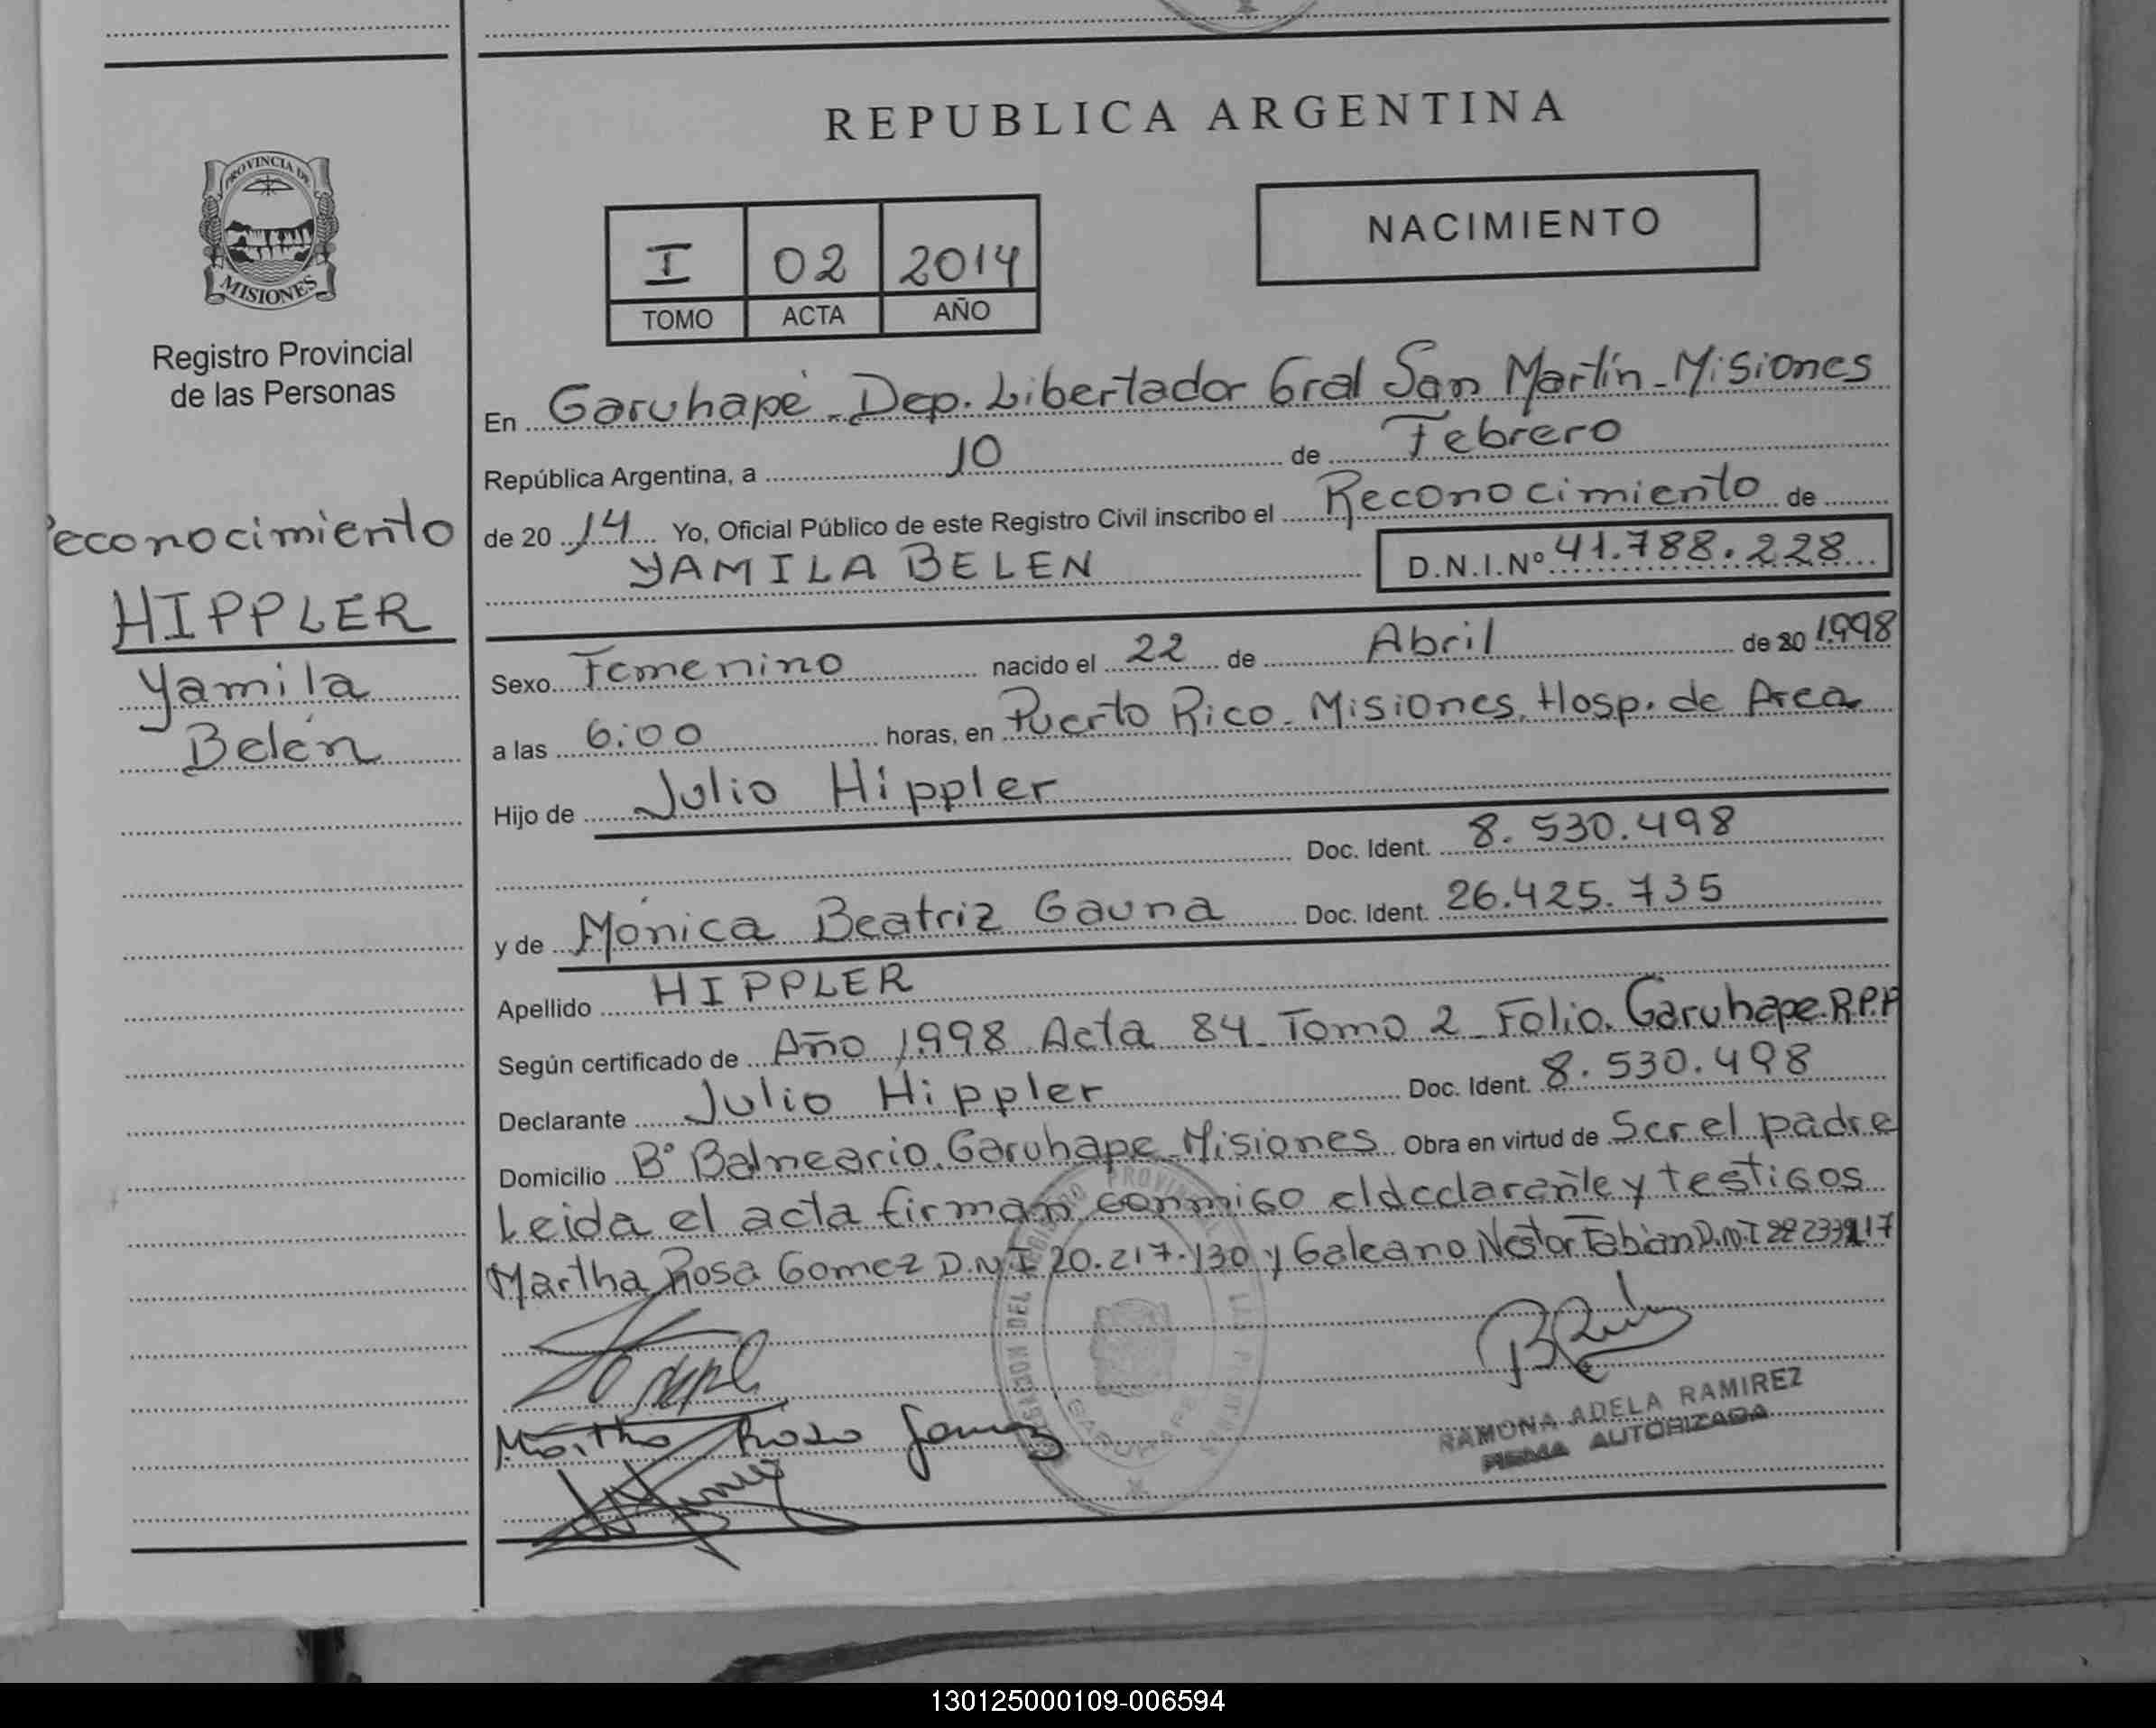 REPUBLICA ARGENTINA
PROVINCIA DE
MISIONES
Registro Provincial
de las Personas
I 02 2014
TOMO ACTA AÑO
NACIMIENTO
econocimiento
HIPPLER
Yamila
Belén
En Garuhapé - Dep. Libertador Gral San Martín - Misiones
República Argentina, a 10 de Febrero
de 20 14 Yo, Oficial Público de este Registro Civil inscribo el Reconocimiento de
YAMILA BELEN D.N.I.Nº 41.788.228
Sexo Femenino nacido el 22 de Abril de 20 1998
a las 6:00 horas, en Puerto Rico - Misiones, Hosp. de Area
Hijo de Julio Hippler
Doc. Ident. 8.530.498
y de Mónica Beatriz Gauna Doc. Ident. 26.425.735
Apellido HIPPLER
Según certificado de Año 1998 Acta 84 - Tomo 2 - Folio. Garuhape. R.P.P
Declarante Julio Hippler Doc. Ident. 8.530.498
Domicilio Bº Balneario. Garuhape - Misiones Obra en virtud de Ser el padre
Leida el acta firman conmigo el declarante y testigos
Martha Rosa Gomez D.N.I 20.217.130 y Galeano Nestor Fabian D.N.I
Martha Rosa Gomez
RAMONA ADELA RAMIREZ
FIRMA AUTORIZADA
130125000109-006594